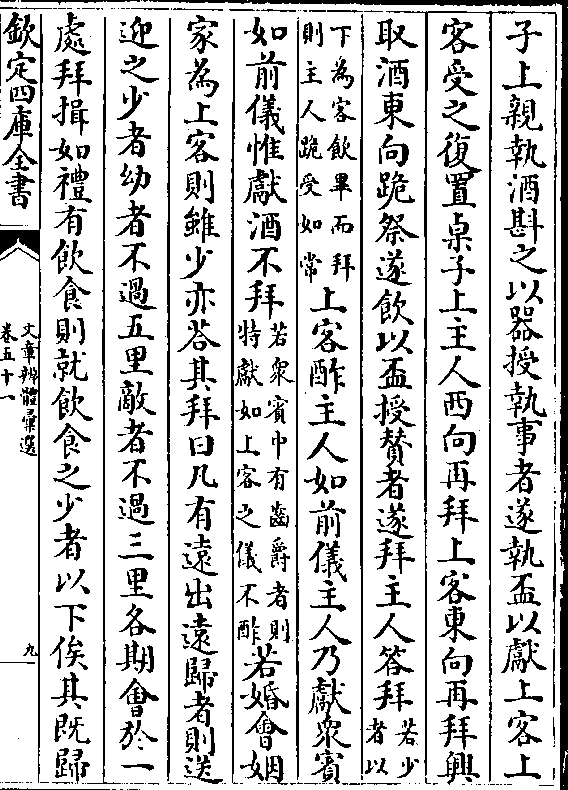 子上親執酒斟之以器授執事者遂執盃以獻上客上
客受之復置桌子上主人西向再拜上客東向再拜興
取酒東向跪祭遂飲以盃授賛者遂拜主人答拜若少者以
下為客飲畢而拜則主人跪受如常上客酢主人如前儀主人乃獻衆賓
如前儀惟獻酒不拜若衆賓中有齒爵者則特獻如上客之儀不酢若婚會姻
家為上客則雖少亦荅其拜曰凡有遠出遠歸者則送
迎之少者幼者不過五里敵者不過三里各期會於一
處拜揖如禮有飲食則就飲食之少者以下俟其既歸
欽定四庫全書
文章辨體彙選
卷五十一
九